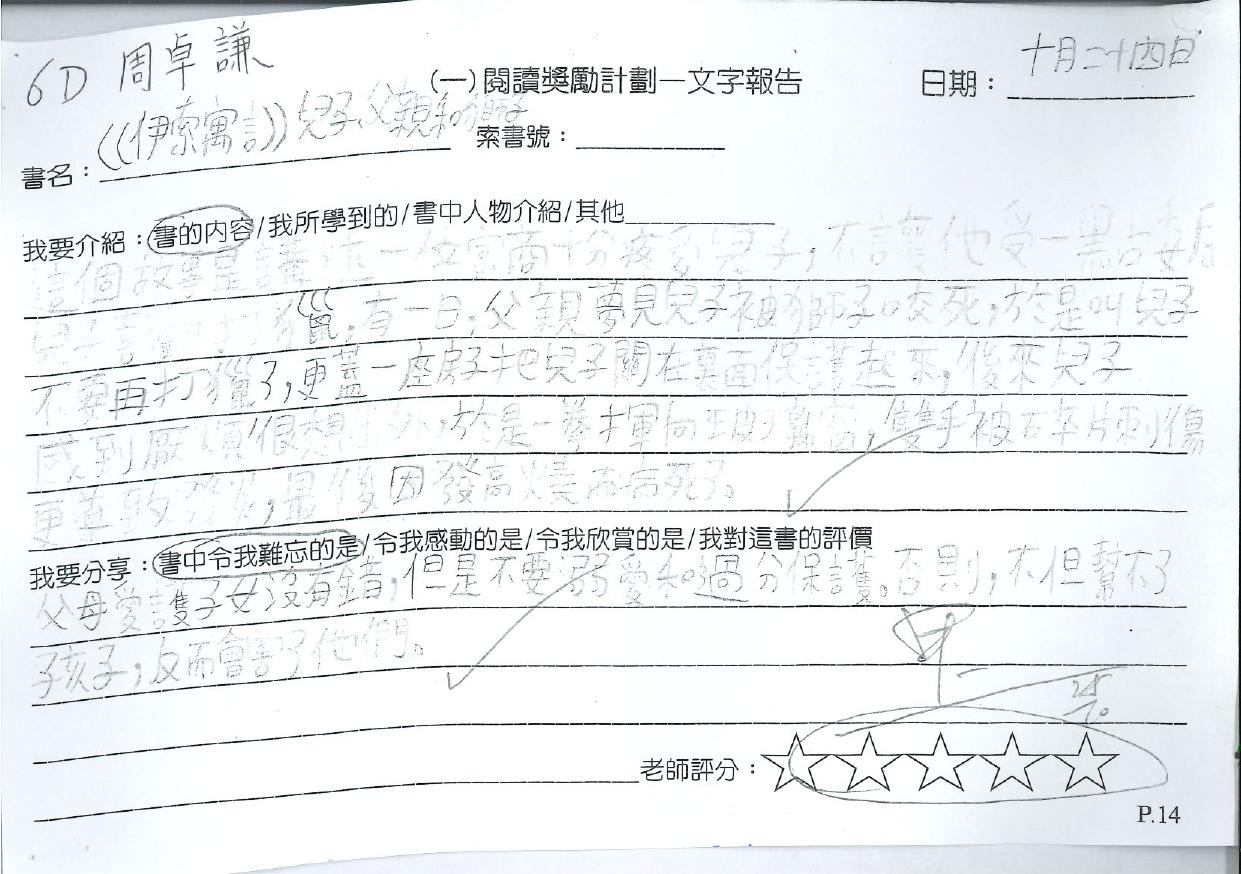 6D 周卓謙
(一)閱讀獎勵計劃—文字報告
日期：十月二十四日
書名：《伊索寓言》兒子、父親和獅子 索書號：
我要介紹：書的內容/我所學到的/書中人物介紹/其他
這個故事是講述一位富商十份疼愛兒子，不讓他受一點
兒子喜 打獵，有一日，父親夢見兒子被獅子咬死，於是叫兒子
不要再打獵了，更蓋一座房子把兒子關在裏面保護起來，後來兒子
感到厭煩，很想 ，於是一拳揮向玻璃窗，雙手被 碎片刺傷
更導致發炎，最後因發高燒而病死了。
我要分享：書中令我難忘的是/令我感動的是/令我欣賞的是/我對這書的評價
父母愛護子女沒有錯，但是不要溺愛和過分保護。否則，不但幫不了
子孩子，反而會害了他們。
甲
老師評分：
P.14